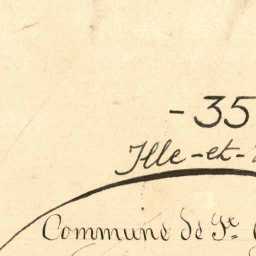 - 35
Ille-et-
Commune de St.